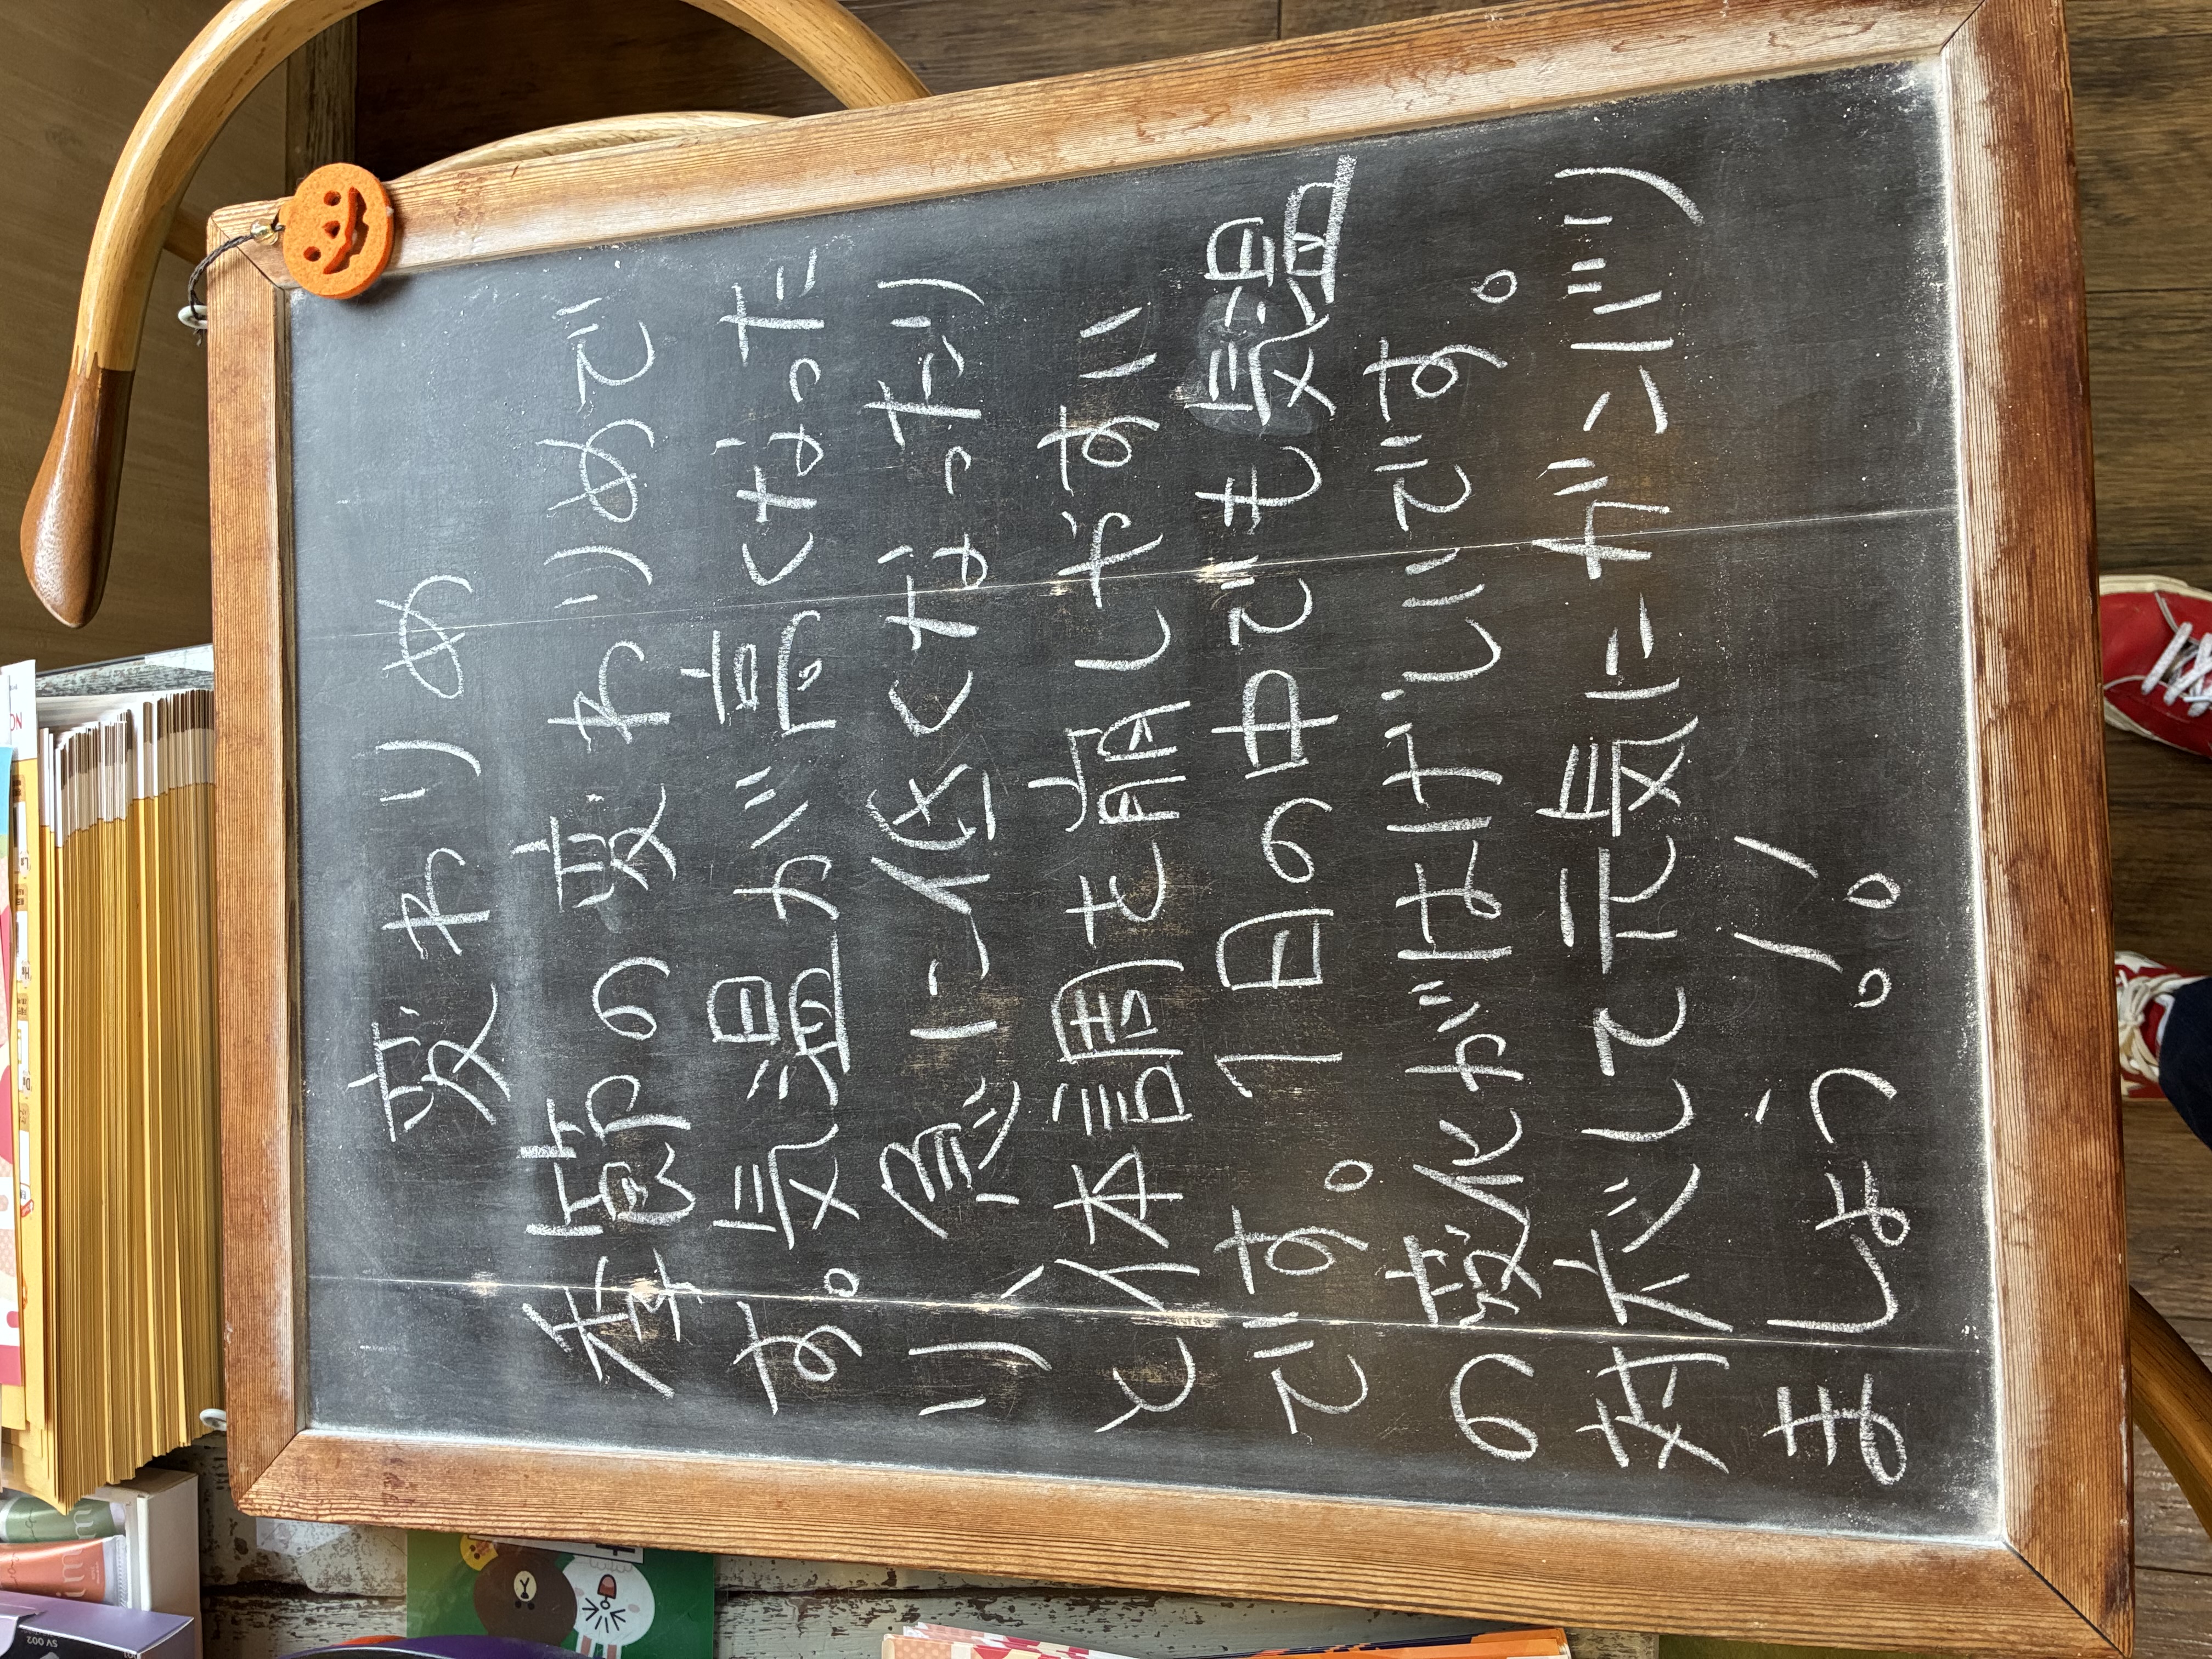 変わりめ
季節の変わりめで
す。気温が高くなった
り、急に低くなったり
と体調を崩しやすい
です。1日の中でも気温
の変化がはげしいです。
対応して元気にがんばり
ましょう!!
SV 002